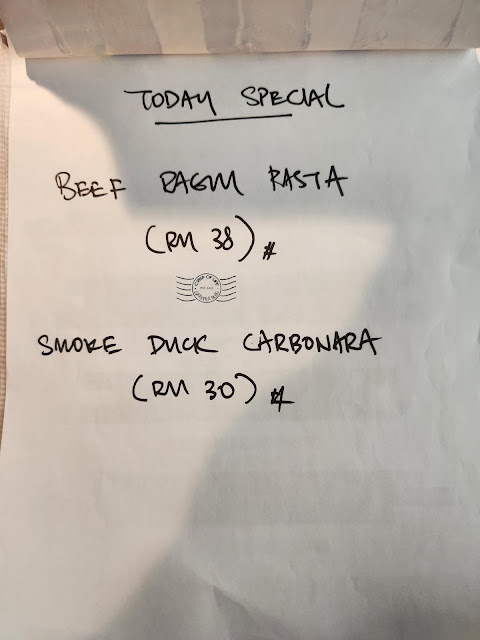 TODAY SPECIAL
BEEF RAGU PASTA
(RM 38)#
SMOKE DUCK CARBONARA
(RM 30)#